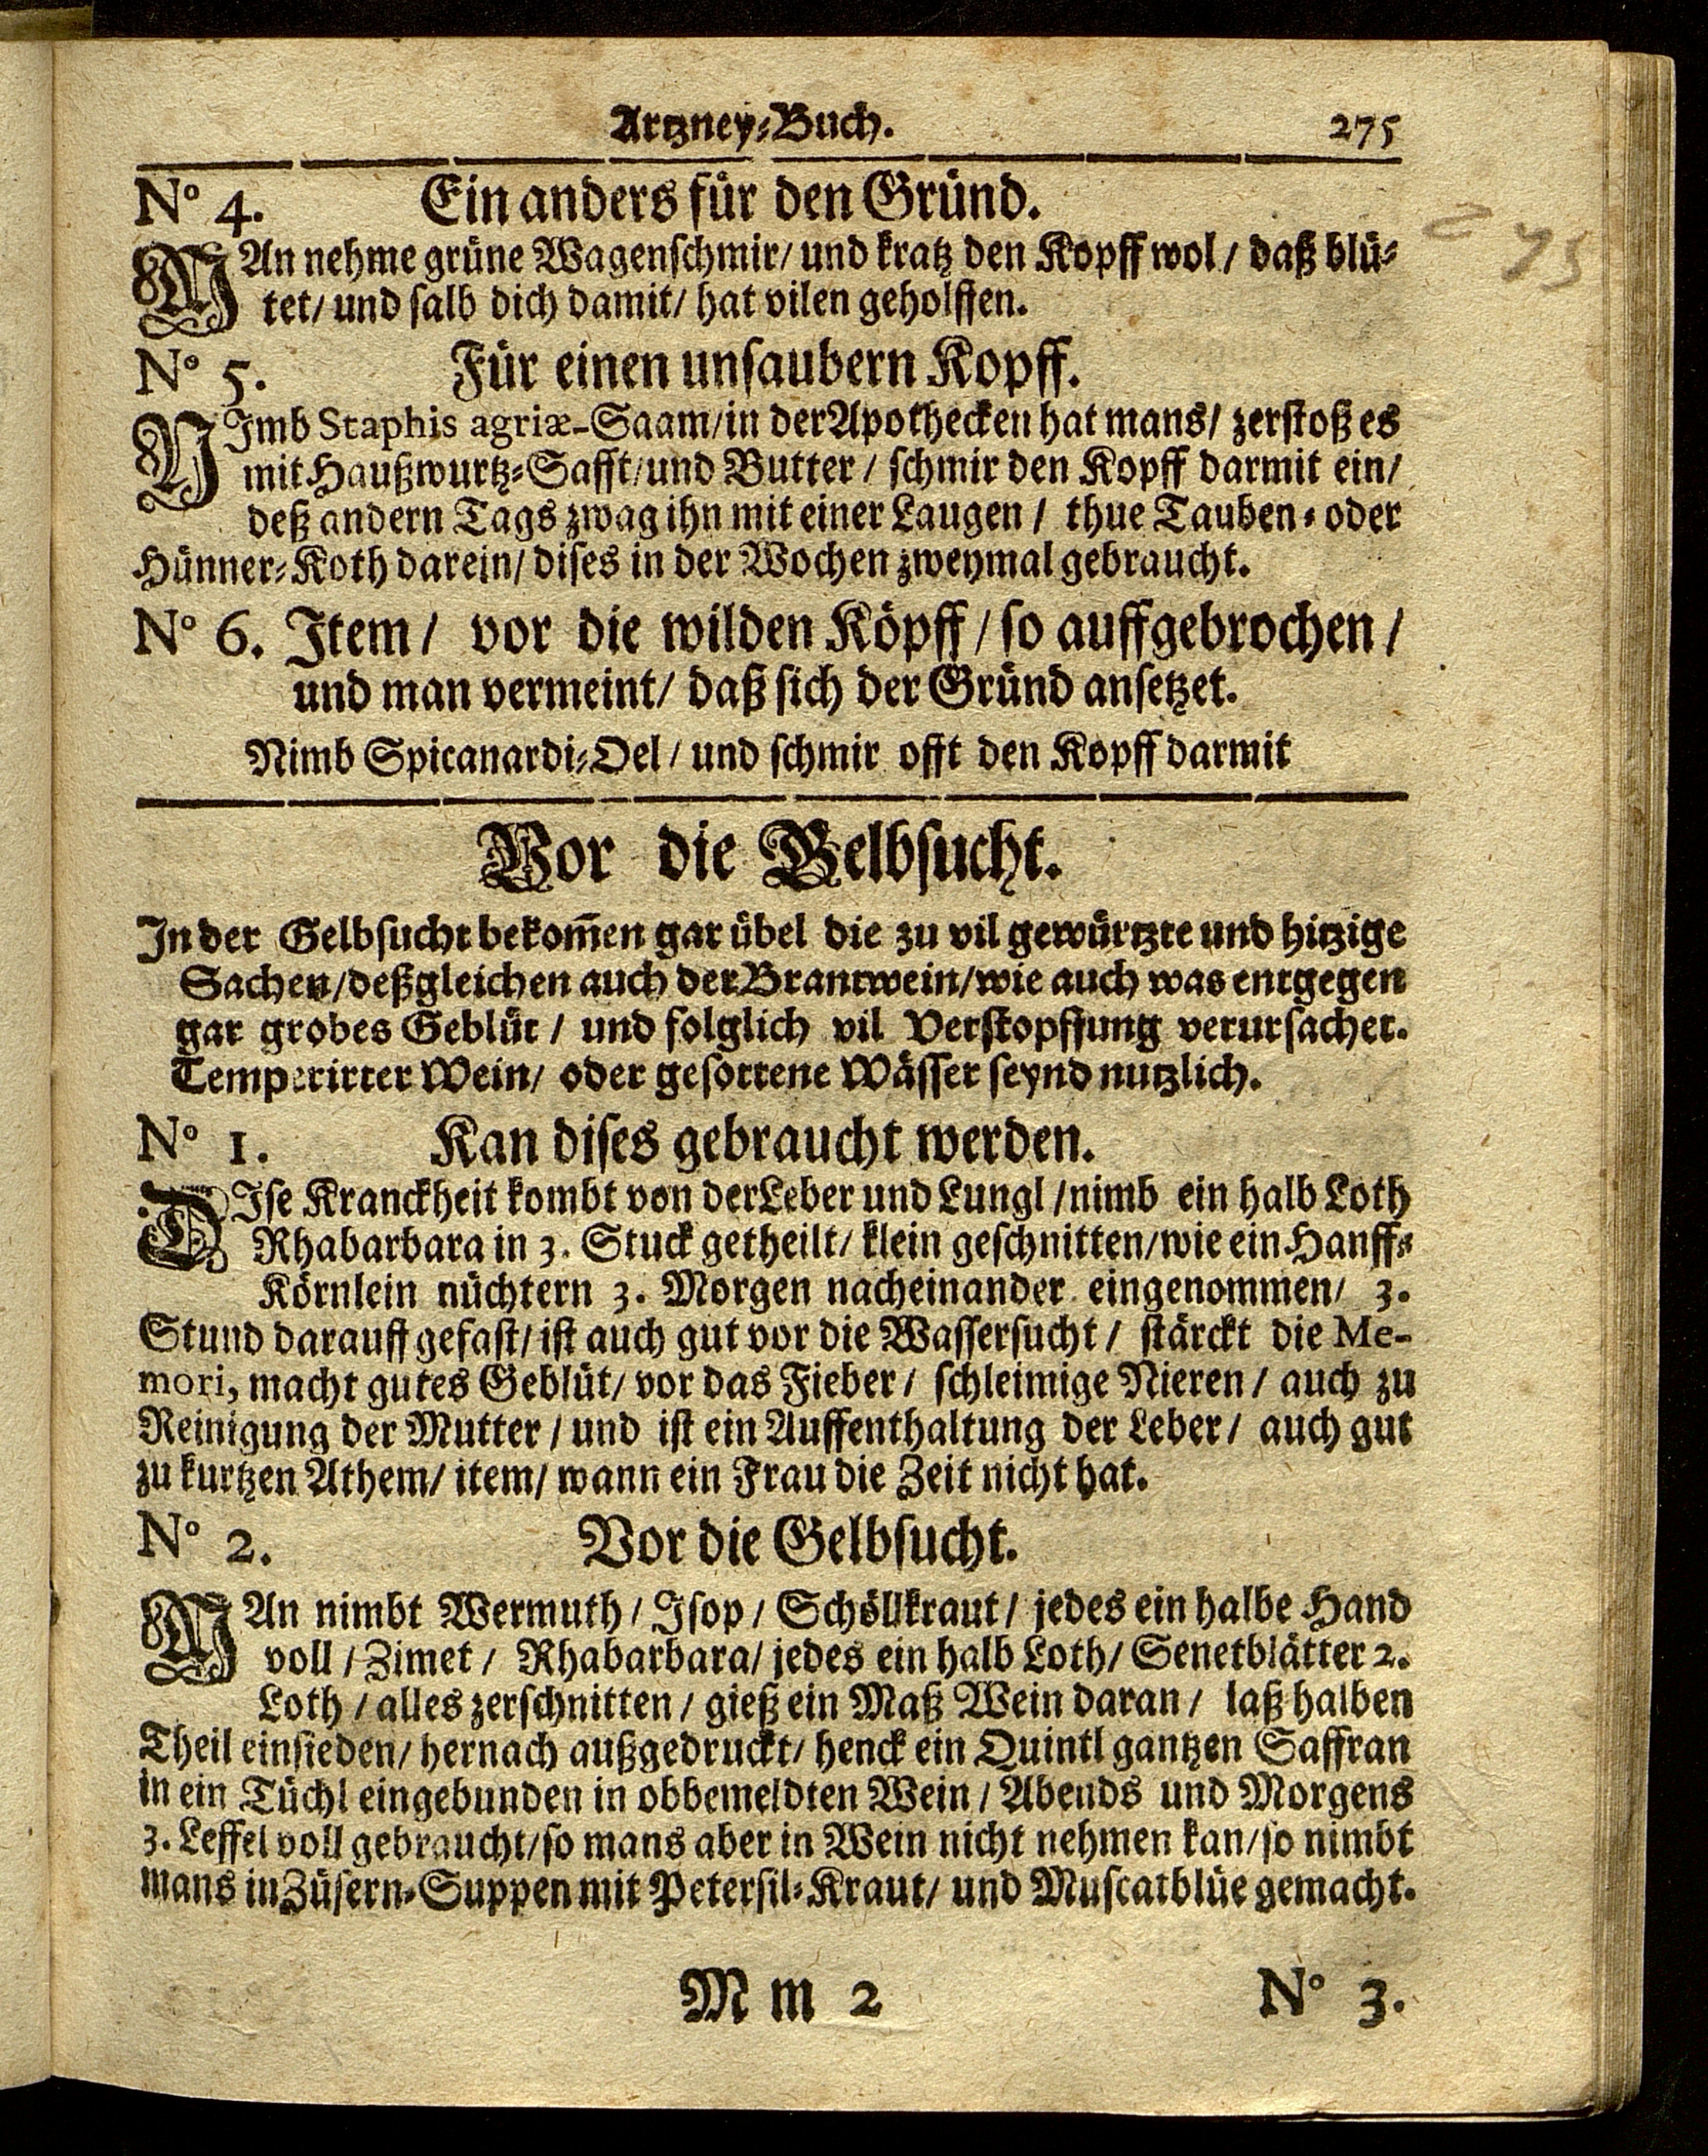 Artzney-Buch. 275
No 4. Ein anders für den Gründ.
MAn nehme grüne Wagenschmir/ und kratz den Kopff wol / daß blü-
tet/ und salb dich damit/ hat vilen geholffen.
275
No 5. Für einen unsaubern Kopff.
NImb Staphis agriæ-Saam/in der Apothecken hat mans/ zerstoß es
mit Haußwurtz-Safft/und Butter / schmir den Kopff darmit ein/
deß andern Tags zwag ihn mit einer Laugen / thue Tauben- oder
Hünner-Koth darein/ dises in der Wochen zweymal gebraucht.
No 6. Item / vor die wilden Köpff / so auffgebrochen /
und man vermeint/ daß sich der Gründ ansetzet.
Nimb Spicanardi-Oel / und schmir offt den Kopff darmit
Vor die Gelbsucht.
In der Gelbsucht bekom̄en gar übel die zu vil gewürtzte und hitzige
Sachen/deßgleichen auch der Brantwein/wie auch was entgegen
gar grobes Geblüt / und folglich vil Verstopffung verursachet.
Temperirter Wein/ oder gesottene Wässer seynd nutzlich.
No 1. Kan dises gebraucht werden.
DIse Kranckheit kombt von der Leber und Lungl /nimb ein halb Loth
Rhabarbara in 3. Stuck getheilt/ klein geschnitten/wie ein Hanff-
Körnlein nüchtern 3. Morgen nacheinander eingenommen/ 3.
Stund darauff gefast/ ist auch gut vor die Wassersucht / stärckt die Me-
mori, macht gutes Geblüt/ vor das Fieber / schleimige Nieren / auch zu
Reinigung der Mutter / und ist ein Auffenthaltung der Leber / auch gut
zu kurtzen Athem/ item/ wann ein Frau die Zeit nicht hat.
No 2. Vor die Gelbsucht.
MAn nimbt Wermuth / Isop / Schöllkraut / jedes ein halbe Hand
voll / Zimet / Rhabarbara/ jedes ein halb Loth/ Senetblätter 2.
Loth / alles zerschnitten / gieß ein Maß Wein daran / laß halben
Theil einsieden/ hernach außgedruckt/ henck ein Quintl gantzen Saffran
in ein Tüchl eingebunden in obbemeldten Wein / Abends und Morgens
3. Leffel voll gebraucht/so mans aber in Wein nicht nehmen kan/so nimbt
mans in Züsern-Suppen mit Petersil-Kraut/ und Muscatblüe gemacht.
M m 2 No 3.